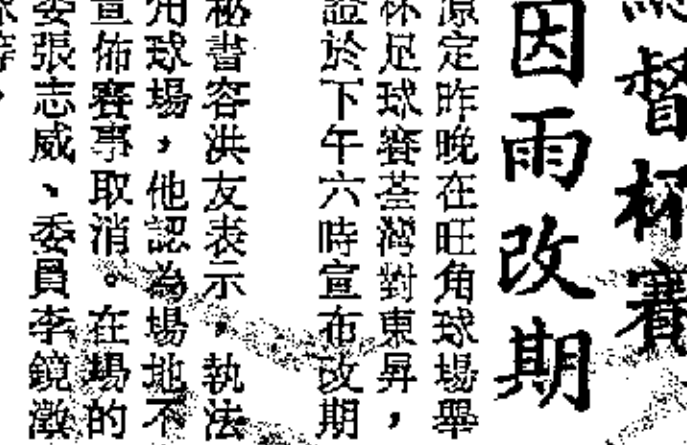 督杯賽
因雨改期
原定昨晚在旺角球場舉
杯足球賽荃灣對東昇，
證於下午六時宣布改期
秘書容洪友表示，執法
角球場，他認為場地不
宣佈賽事取消。在場的
委張志威、委員李鏡澂